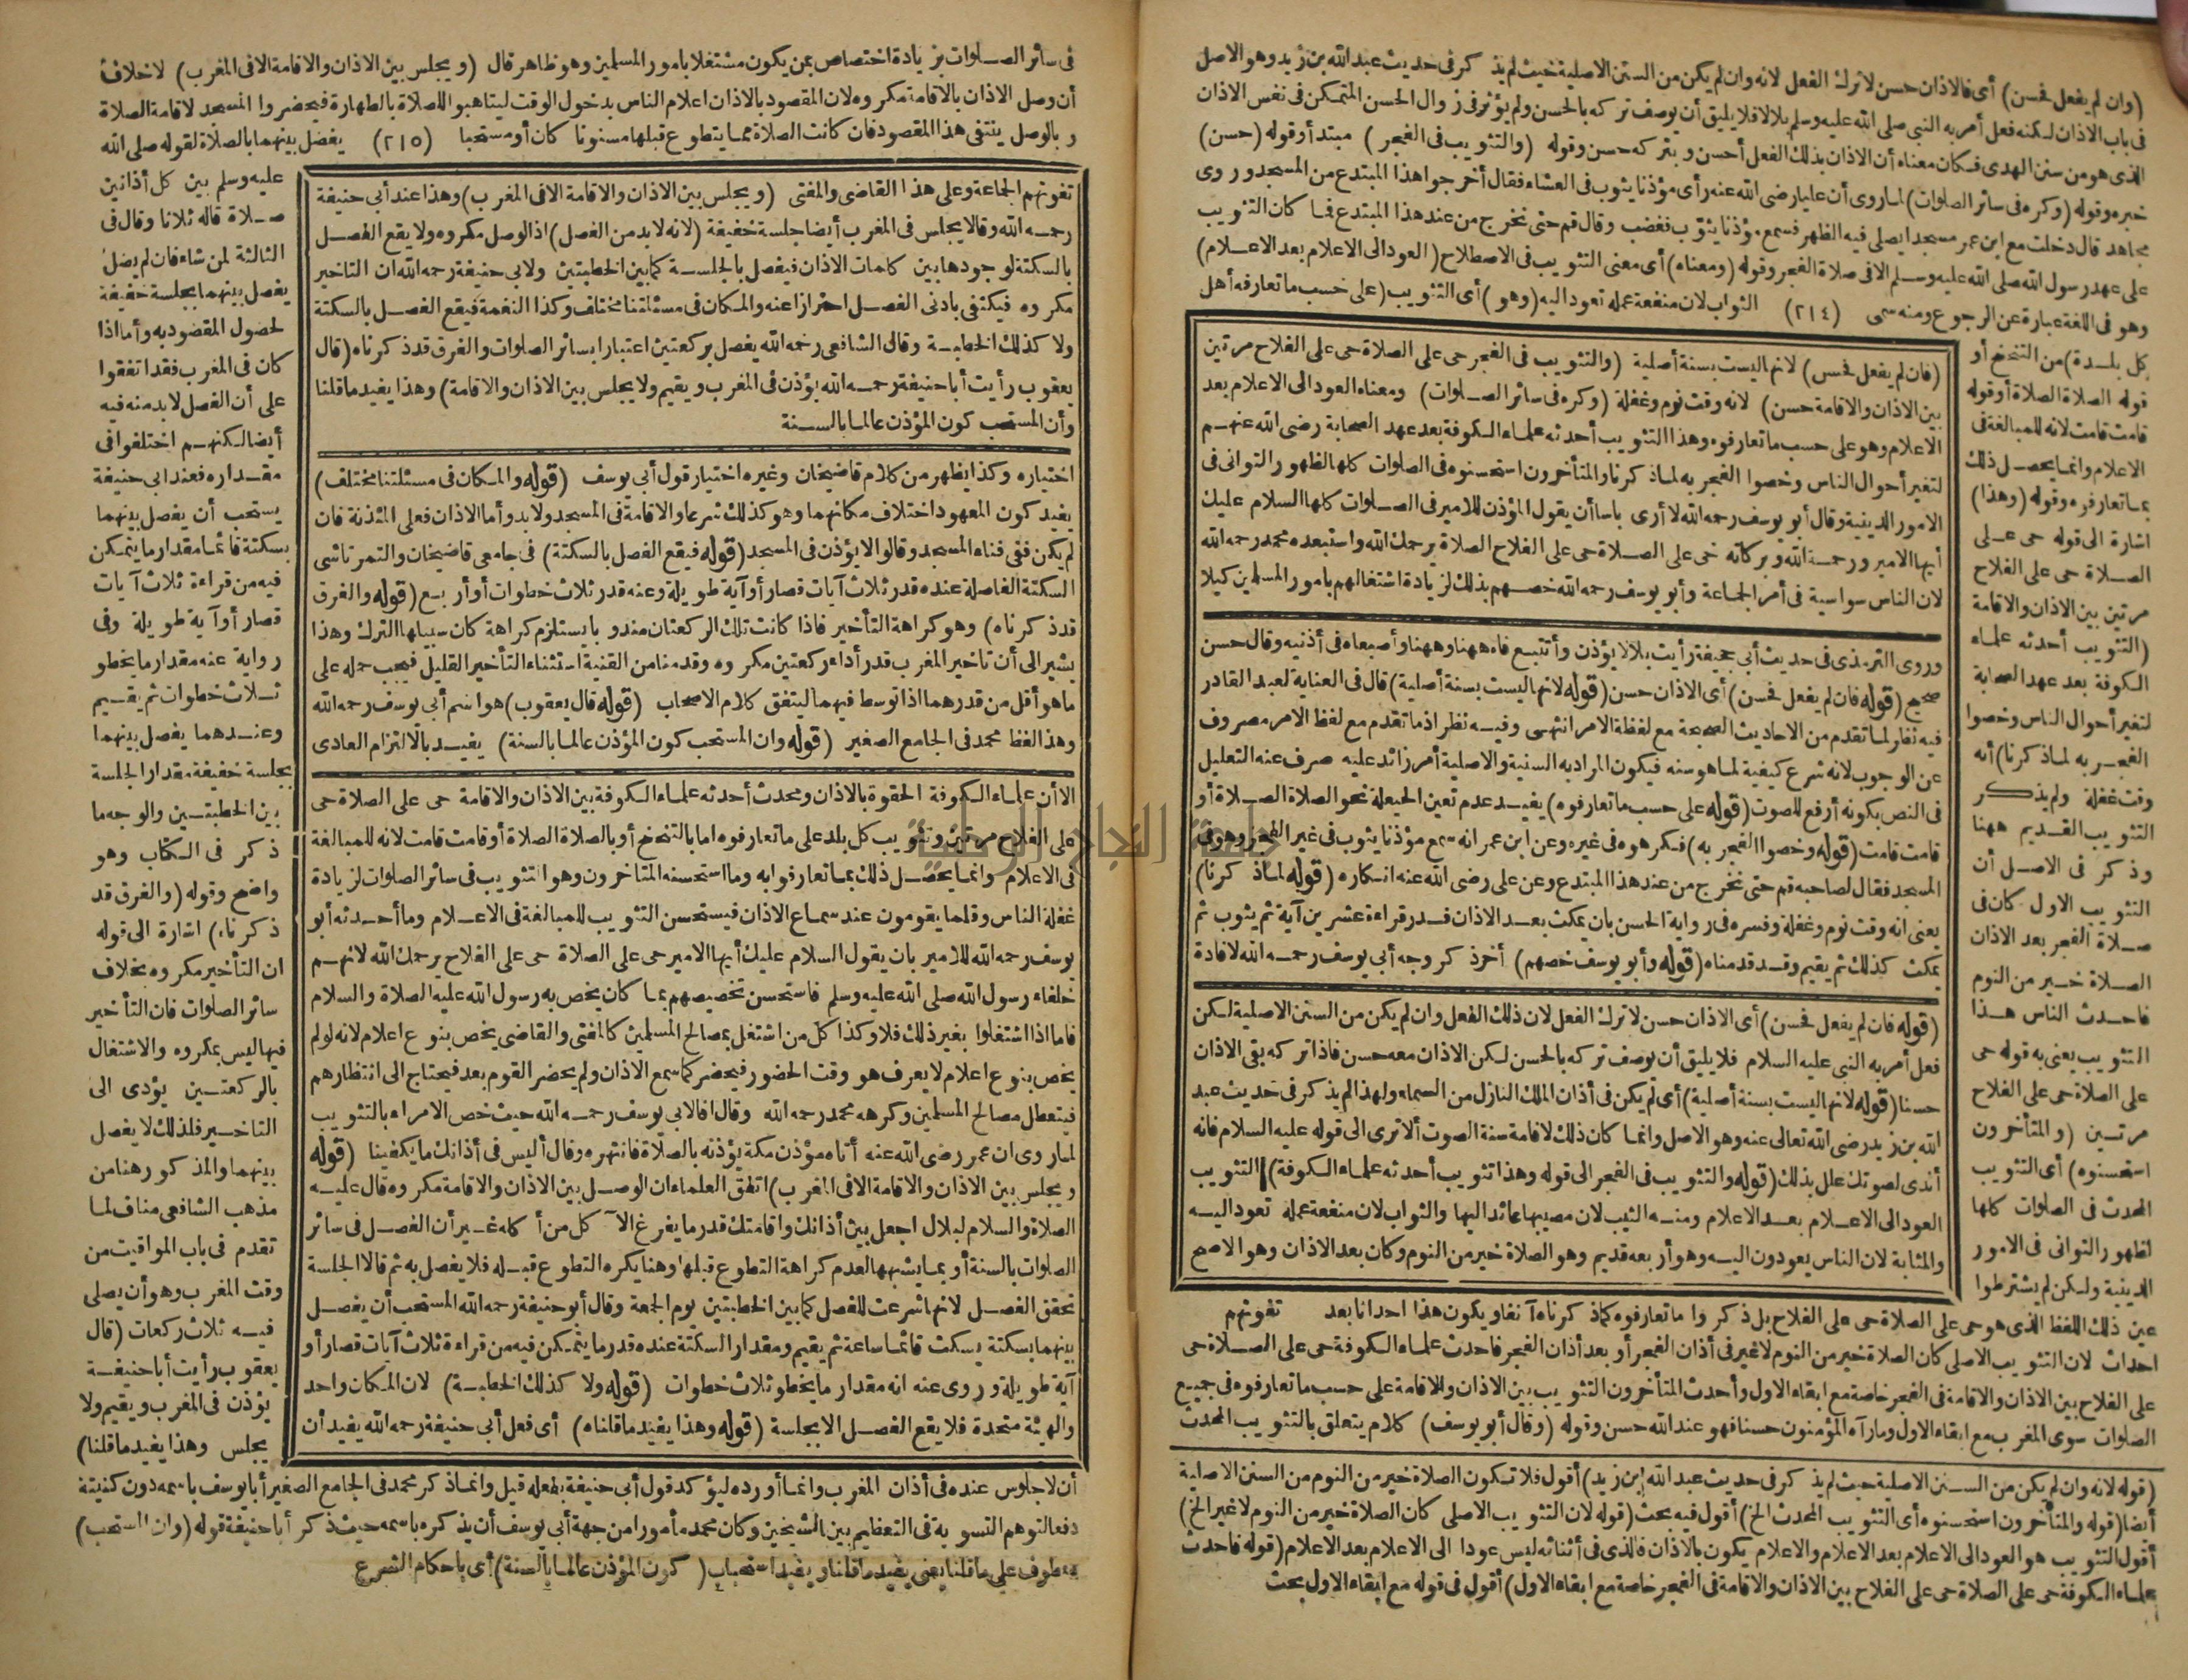 (وان لم يفعل فحسن) أى فالاذان حسن لا ترك الفعل لانه وان لم يكن من السنن الاصلية حيث لم يذكر فى حديث عبد الله بن زيد وهو الاصل
فى باب الاذان لكنه فعل أمر به النبى صلى الله عليه وسلم بلالا فلا يليق أن يوصف تركه بالحسن ولم يؤثر فى زوال الحسن المتمكن فى نفس الاذان
الذى هو من سنن الهدى فكان معناه أن الاذان بذلك الفعل أحسن وبتركه حسن وقوله (والتثويب فى الفجر) مبتدأ وقوله (حسن)
خبره وقوله (وكره فى سائر الصلوات) لما روى أن عليا رضى الله عنه رأى مؤذنا يثوب فى العشاء فقال أخرجوا هذا المبتدع من المسجد وروى
مجاهد قال دخلت مع ابن عمر مسجدا يصلى فيه الظهر فسمع مؤذنا يثوب فغضب وقال قم حتى نخرج من عند هذا المبتدع فما كان التثويب
على عهد رسول الله صلى الله عليه وسلم الا فى صلاة الفجر وقوله (ومعناه) أى معنى التثويب فى الاصطلاح (العود الى الاعلام بعد الاعلام)
وهو فى اللغة عبارة عن الرجوع ومنه سمى (٢١٤) الثواب لان منفعة عمله تعود اليه (وهو) أى التثويب (على حسب ما تعارفه أهل
كل بلدة) من التنحنح أو
قوله الصلاة الصلاة أو قوله
قامت قامت لانه للمبالغة فى
الاعلام وانما يحصل ذلك
بما تعارفوه وقوله (وهذا)
اشارة الى قوله حى على
الصلاة حى على الفلاح
مرتين بين الاذان والاقامة
(التثويب أحدثه علماء
الكوفة بعد عهد الصحابة
لتغير أحوال الناس وخصوا
الفجر به لما ذكرنا) أنه
وقت غفلة ولم يذكر
التثويب القديم ههنا
وذكر فى الاصل أن
التثويب الاول كان فى
صلاة الفجر بعد الاذان
الصلاة خير من النوم
فأحدث الناس هذا
التثويب يعنى به قوله حى
على الصلاة حى على الفلاح
مرتين (والمتأخرون
استحسنوه) أى التثويب
المحدث فى الصلوات كلها
لظهور التوانى فى الامور
الدينية ولكن لم يشترطوا
(فان لم يفعل فحسن) لانها ليست بسنة أصلية (والتثويب فى الفجر حى على الصلاة حى على الفلاح مرتين
بين الاذان والاقامة حسن) لانه وقت نوم وغفلة (وكره فى سائر الصلوات) ومعناه العود الى الاعلام بعد
الاعلام وهو على حسب ما تعارفوه وهذا التثويب أحدثه علماء الكوفة بعد عهد الصحابة رضى الله عنهم
لتغير أحوال الناس وخصوا الفجر به لما ذكرنا والمتأخرون استحسنوه فى الصلوات كلها لظهور التوانى فى
الامور الدينية وقال أبو يوسف رحمه الله لا أرى بأسا أن يقول المؤذن للامير فى الصلوات كلها السلام عليك
أيها الامير ورحمة الله وبركاته حى على الصلاة حى على الفلاح الصلاة يرحمك الله واستبعده محمد رحمه الله
لان الناس سواسية فى أمر الجماعة وأبو يوسف رحمه الله خصهم بذلك لزيادة اشتغالهم بامور المسلمين كيلا
وروى الترمذى فى حديث أبى جحيفة رأيت بلالا يؤذن وأتتبع فاه ههنا وههنا وأصبعاه فى أذنيه وقال حسن
صحيح (قوله فان لم يفعل فحسن) أى الاذان حسن (قوله لانها ليست بسنة أصلية) قال فى العناية لعبد القادر
فيه نظر لما تقدم من الاحاديث الصحيحة مع لفظة الامر انتهى وفيه نظر اذ ما تقدم مع لفظ الامر مصروف
عن الوجوب لانه شرع كيفية لما هو سنه فيكون المراد به السنية والاصلية أمر زائد عليه صرف عنه التعليل
فى النص بكونه أرفع للصوت (قوله على حسب ما تعارفوه) يفيد عدم تعين الحيعلة نحو الصلاة الصلاة أو
قامت قامت (قوله وخصوا الفجر به) فكرهوه فى غيره وعن ابن عمر انه سمع مؤذنا يثوب فى غير الفجر وهو فى
المسجد فقال لصاحبه قم حتى نخرج من عند هذا المبتدع وعن على رضى الله عنه انكاره (قوله لما ذكرنا)
يعنى انه وقت نوم وغفلة وفسره فى رواية الحسن بان يمكث بعد الاذان قدر قراءة عشرين آية ثم يثوب ثم
يمكث كذلك ثم يقيم وقد قدمناه (قوله وأبو يوسف خصهم) أخر ذكر وجه أبى يوسف رحمه الله لافادة
(قوله فان لم يفعل فحسن) أى الاذان حسن لا ترك الفعل لان ذلك الفعل وان لم يكن من السنن الاصلية لكن
فعل أمر به النبى عليه السلام فلا يليق أن يوصف تركه بالحسن لكن الاذان معه حسن فاذا تركه بقى الاذان
حسنا (قوله لانها ليست بسنة أصلية) أى لم يكن فى أذان الملك النازل من السماء ولهذا لم يذكر فى حديث عبد
الله بن زيد رضى الله تعالى عنه وهو الاصل وانما كان ذلك لاقامة سنة الصوت ألا ترى الى قوله عليه السلام فانه
أندى لصوتك علل بذلك (قوله والتثويب فى الفجر الى قوله وهذا تثويب أحدثه علماء الكوفة) التثويب
العود الى الاعلام بعد الاعلام ومنه الثيب لان مصيبها عائد اليها والثواب لان منفعة عمله تعود اليه
والمثابة لان الناس يعودون اليه وهو أربعه قديم وهو الصلاة خير من النوم وكان بعد الاذان وهو الاصح
عين ذلك اللفظ الذى هو حى على الصلاة حى على الفلاح بل ذكروا ما تعارفوه كما ذكرناه آنفا ويكون هذا احداثا بعد تفوتهم
احداث لان التثويب الاصلى كان الصلاة خير من النوم لا غير فى أذان الفجر أو بعد أذان الفجر فاحدث علماء الكوفة حى على الصلاة حى
على الفلاح بين الاذان والاقامة فى الفجر خاصة مع ابقاء الاول وأحدث المتأخرون التثويب بين الاذان والاقامة على حسب ما تعارفوه فى جميع
الصلوات سوى المغرب مع ابقاء الاول وما رآه المؤمنون حسنا فهو عند الله حسن وقوله (وقال أبو يوسف) كلام يتعلق بالتثويب المحدث
(قوله لانه وان لم يكن من السنن الاصلية حيث لم يذكر فى حديث عبد الله ابن زيد) أقول فلا تكون الصلاة خير من النوم من السنن الاصلية
أيضا (قوله والمتأخرون استحسنوه أى التثويب المحدث الخ) أقول فيه بحث (قوله لان التثويب الاصلى كان الصلاة خير من النوم لا غير الخ)
أقول التثويب هو العود الى الاعلام بعد الاعلام والاعلام يكون بالاذان فالذى فى أثنائه ليس عودا الى الاعلام بعد الاعلام (قوله فاحدث
علماء الكوفة حى على الصلاة حى على الفلاح بين الاذان والاقامة فى الفجر خاصة مع ابقاء الاول) أقول فى قوله مع ابقاء الاول بحث
فى سائر الصلوات بزيادة اختصاص بمن يكون مشتغلا بامور المسلمين وهو ظاهر قال (ويجلس بين الاذان والاقامة الا فى المغرب) لا خلاف
أن وصل الاذان بالاقامة مكروه لان المقصود بالاذان اعلام الناس بدخول الوقت ليتاهبوا للصلاة بالطهارة فيحضروا المسجد لاقامة الصلاة
وبالوصل ينتفى هذا المقصود فان كانت الصلاة مما يتطوع قبلها مسنونا كان أو مستحبا (٢١٥) يفصل بينهما بالصلاة لقوله صلى الله
عليه وسلم بين كل أذانين
صلاة قاله ثلاثا وقال فى
الثالثة لمن شاء فان لم يصل
يفصل بينهما بجلسة خفيفة
لحصول المقصود به وأما اذا
كان فى المغرب فقد اتفقوا
على أن الفصل لا بد منه فيه
أيضا لكنهم اختلفوا فى
مقداره فعند ابى حنيفة
يستحب أن يفصل بينهما
بسكتة قائما مقدار ما يتمكن
فيه من قراءة ثلاث آيات
قصار أو آية طويلة وفى
رواية عنه مقدار ما يخطو
ثلاث خطوات ثم يقيم
وعندهما يفصل بينهما
بجلسة خفيفة مقدار الجلسة
بين الخطبتين والوجه ما
ذكر فى الكتاب وهو
واضح وقوله (والفرق قد
ذكرناه) اشارة الى قوله
ان التأخير مكروه بخلاف
سائر الصلوات فان التأخير
فيها ليس بمكروه والاشتغال
بالركعتين يؤدى الى
التاخير فلذلك لا يفصل
بينهما والمذكور هنا من
مذهب الشافعى مناف لما
تقدم فى باب المواقيت من
وقت المغرب وهو أن يصلى
فيه ثلاث ركعات (قال
يعقوب رأيت أبا حنيفة
يؤذن فى المغرب ويقيم ولا
يجلس وهذا يفيد ما قلنا)
تفوتهم الجماعة وعلى هذا القاضى والمفتى (ويجلس بين الاذان والاقامة الا فى المغرب) وهذا عند أبى حنيفة
رحمه الله وقالا يجلس فى المغرب أيضا جلسة خفيفة (لانه لا بد من الفصل) اذ الوصل مكروه ولا يقع الفصل
بالسكتة لوجودها بين كلمات الاذان فيفصل بالجلسة كما بين الخطبتين ولابى حنيفة رحمه الله ان التاخير
مكروه فيكتفى بادنى الفصل احترازا عنه والمكان فى مسئلتنا مختلف وكذا النغمة فيقع الفصل بالسكتة
ولا كذلك الخطبة وقال الشافعى رحمه الله يفصل بركعتين اعتبارا بسائر الصلوات والفرق قد ذكرناه (قال
يعقوب رأيت أبا حنيفة رحمه الله يؤذن فى المغرب ويقيم ولا يجلس بين الاذان والاقامة) وهذا يفيد ما قلنا
وأن المستحب كون المؤذن عالما بالسنة
اختياره وكذا يظهر من كلام قاضيخان وغيره اختيار قول أبى يوسف (قوله والمكان فى مسئلتنا مختلف)
يفيد كون المعهود اختلاف مكانهما وهو كذلك شرعا والاقامة فى المسجد ولا بد وأما الاذان فعلى المئذنة فان
لم يكن ففى فناء المسجد وقالوا لا يؤذن فى المسجد (قوله فيقع الفصل بالسكتة) فى جامعى قاضيخان والتمرتاشى
السكتة الفاصلة عنده قدر ثلاث آيات قصار أو آية طويلة وعنه قدر ثلاث خطوات أو أربع (قوله والفرق
قد ذكرناه) وهو كراهة التأخير فاذا كانت تلك الركعتان مندوبا يستلزم كراهة كان سبيلها الترك وهذا
يشير الى أن تاخير المغرب قدر أداء ركعتين مكروه وقد قدمنا من القنية استثناء التأخير القليل فيجب حمله على
ما هو أقل من قدرهما اذا توسط فيهما ليتفق كلام الاصحاب (قوله قال يعقوب) هو اسم أبى يوسف رحمه الله
وهذا لفظ محمد فى الجامع الصغير (قوله وان المستحب كون المؤذن عالما بالسنة) يفيد بالالتزام العادى
الا أن علماء الكوفة الحقوه بالاذان ومحدث أحدثه علماء الكوفة بين الاذان والاقامة حى على الصلاة حى
على الفلاح مرتين وتثويب كل بلد على ما تعارفوه اما بالتنحنح أو بالصلاة الصلاة أو قامت قامت لانه للمبالغة
فى الاعلام وانما يحصل ذلك بما تعارفوا به وما استحسنه المتاخرون وهو التثويب فى سائر الصلوات لزيادة
غفلة الناس وقلما يقومون عند سماع الاذان فيستحسن التثويب للمبالغة فى الاعلام وما أحدثه أبو
يوسف رحمه الله للامير بان يقول السلام عليك أيها الامير حى على الصلاة حى على الفلاح يرحمك الله لانهم
خلفاء رسول الله صلى الله عليه وسلم فاستحسن تخصيصهم بما كان يخص به رسول الله عليه الصلاة والسلام
فاما اذا اشتغلوا بغير ذلك فلا وكذا كل من اشتغل بمصالح المسلمين كالمفتى والقاضى يخص بنوع اعلام لانه لو لم
يخص بنوع اعلام لا يعرف هو وقت الحضور فيحضر كما سمع الاذان ولم يحضر القوم بعد فيحتاج الى انتظارهم
فيتعطل مصالح المسلمين وكرهه محمد رحمه الله وقال افا لابى يوسف رحمه الله حيث خص الامراء بالتثويب
لما روى ان عمر رضى الله عنه أتاه مؤذن مكة يؤذنه بالصلاة فانتهره وقال أليس فى أذانك ما يكفينا (قوله
ويجلس بين الاذان والاقامة الا فى المغرب) اتفق العلماء ان الوصل بين الاذان والاقامة مكروه قال عليه
الصلاة والسلام لبلال اجعل بين أذانك واقامتك قدر ما يفرغ الآكل من أكله غير أن الفصل فى سائر
الصلوات بالسنة أو بما يشبهها لعدم كراهة التطوع قبلها وهنا يكره التطوع قبله فلا يفصل به ثم قالا الجلسة
تحقق الفصل لانها شرعت للفصل كما بين الخطبتين يوم الجمعة وقال أبو حنيفة رحمه الله المستحب أن يفصل
بينهما بسكتة يسكت قائما ساعة ثم يقيم ومقدار السكتة عنده قدر ما يتمكن فيه من قراءة ثلاث آيات قصار أو
آية طويلة وروى عنه انه مقدار ما يخطو ثلاث خطوات (قوله ولا كذلك الخطبة) لان المكان واحد
والهيئة متحدة فلا يقع الفصل الا بجلسة (قوله وهذا يفيد ما قلناه) أى فعل أبى حنيفة رحمه الله يفيد أن
أن لا جلوس عنده فى أذان المغرب وانما أورده ليؤكد قول أبى حنيفة بفعله قيل وانما ذكر محمد فى الجامع الصغير أبا يوسف باسمه دون كنيته
دفعا لتوهم التسوية فى التعظيم بين الشيخين وكان محمد مأمورا من جهة أبى يوسف أن يذكره باسمه حيث ذكر أبا حنيفة قوله (وان المستحب)
معطوف على ما قلنا يعنى يفيد ما قلنا ويفيد استحباب (كون المؤذن عالما بالسنة) أى باحكام الشرع
جامعة النجاح الوطنية